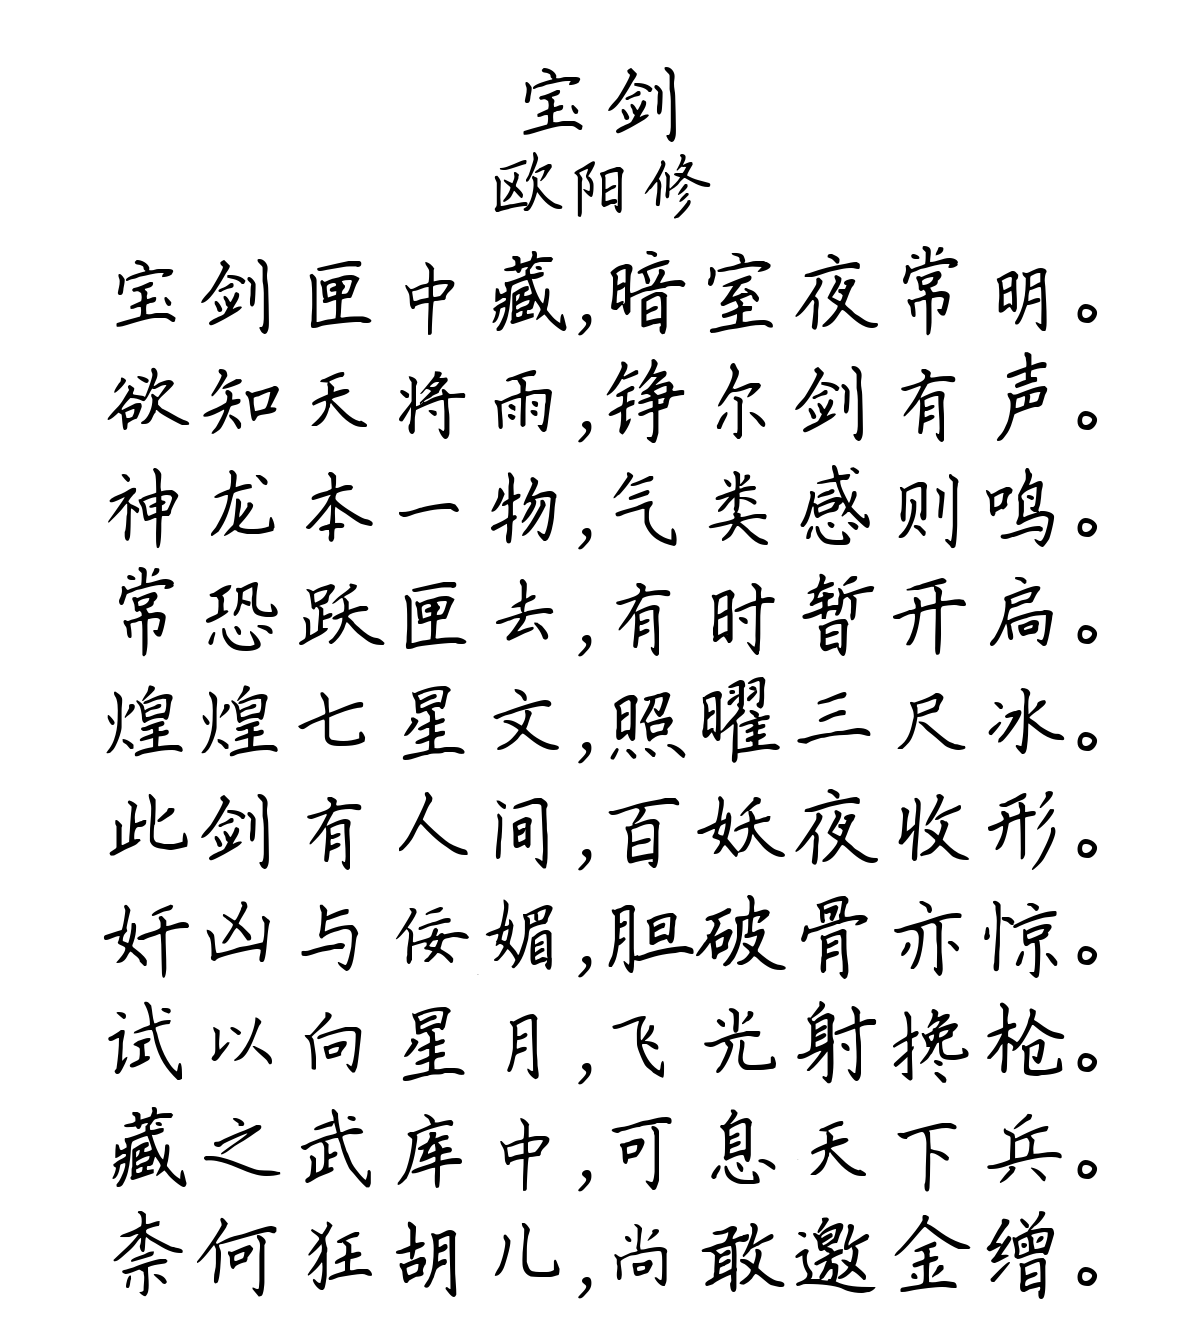 宝剑
欧阳修
宝剑匣中藏,暗室夜常明。
欲知天将雨,铮尔剑有声。
神龙本一物,气类感则鸣。
常恐跃匣去,有时暂开启。
煌煌七星文,照曜三尺冰。
此剑有人间,百妖夜收形。
奸凶与佞媚,胆破骨亦惊。
试以向星月,飞光射搀枪。
藏之武库中,可息天下兵。
柰何狂胡儿,尚敢邀金缯。